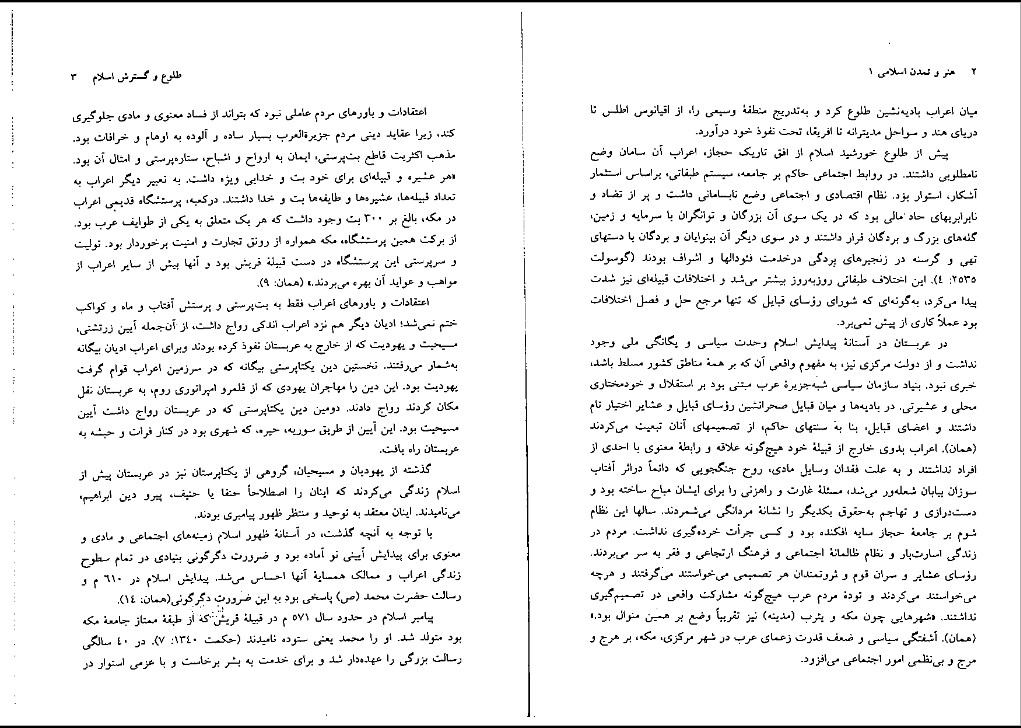 ۲   هنر و تمدن اسلامی ۱
میان اعراب بادیه‌نشین طلوع کرد و به‌تدریج منطقهٔ وسیعی را، از اقیانوس اطلس تا
دریای هند و سواحل مدیترانه تا افریقا، تحت نفوذ خود درآورد.
پیش از طلوع خورشید اسلام از افق تاریک حجاز، اعراب آن سامان وضع
نامطلوبی داشتند. در روابط اجتماعی حاکم بر جامعه، سیستم طبقاتی، براساس استثمار
آشکار، استوار بود. نظام اقتصادی و اجتماعی وضع نابسامانی داشت و پر از تضاد و
نابرابریهای حاد مالی بود که در یک سوی آن بزرگان و توانگران با سرمایه و زمین،
گله‌های بزرگ و بردگان قرار داشتند و در سوی دیگر آن بینوایان و بردگان با دستهای
تهی و گرسنه در زنجیرهای بردگی درخدمت فئودالها و اشراف بودند (گوسولت
۲۵۳۵: ۴). این اختلاف طبقاتی روزبه‌روز بیشتر می‌شد و اختلافات قبیله‌ای نیز شدت
پیدا می‌کرد، به‌گونه‌ای که شورای رؤسای قبایل که تنها مرجع حل و فصل اختلافات
بود عملاً کاری از پیش نمی‌برد.
در عربستان در آستانهٔ پیدایش اسلام وحدت سیاسی و یگانگی ملی وجود
نداشت و از دولت مرکزی نیز، به مفهوم واقعی آن که بر همهٔ مناطق کشور مسلط باشد،
خبری نبود. بنیاد سازمان سیاسی شبه‌جزیرهٔ عرب مبتنی بود بر استقلال و خودمختاری
محلی و عشیرتی. در بادیه‌ها و میان قبایل صحرانشین رؤسای قبایل و عشایر اختیار تام
داشتند و اعضای قبایل، بنا به سنتهای حاکم، از تصمیمهای آنان تبعیت می‌کردند
(همان). اعراب بدوی خارج از قبیلهٔ خود هیچ‌گونه علاقه و رابطهٔ معنوی با احدی از
افراد نداشتند و به علت فقدان وسایل مادی، روح جنگجویی که دائماً دراثر آفتاب
سوزان بیابان شعله‌ور می‌شد، مسئلهٔ غارت و راهزنی را برای ایشان مباح ساخته بود و
دست‌درازی و تهاجم به‌حقوق یکدیگر را نشانهٔ مردانگی می‌شمردند. سالها این نظام
شوم بر جامعهٔ حجاز سایه افکنده بود و کسی جرأت خرده‌گیری نداشت. مردم در
زندگی اسارت‌بار و نظام ظالمانهٔ اجتماعی و فرهنگ ارتجاعی و فقر به سر می‌بردند.
رؤسای عشایر و سران قوم و ثروتمندان هر تصمیمی می‌خواستند می‌گرفتند و هرچه
می‌خواستند می‌کردند و تودهٔ مردم عرب هیچ‌گونه مشارکت واقعی در تصمیم‌گیری
نداشتند. «شهرهایی چون مکه و یثرب (مدینه) نیز تقریباً وضع بر همین منوال بود.»
(همان). آشفتگی سیاسی و ضعف قدرت زعمای عرب در شهر مرکزی، مکه، بر هرج و
مرج و بی‌نظمی امور اجتماعی می‌افزود.
طلوع و گسترش اسلام   ۳
اعتقادات و باورهای مردم عاملی نبود که بتواند از فساد معنوی و مادی جلوگیری
کند، زیرا عقاید دینی مردم جزیرةالعرب بسیار ساده و آلوده به اوهام و خرافات بود.
مذهب اکثریت قاطع بت‌پرستی، ایمان به ارواح و اشباح، ستاره‌پرستی و امثال آن بود.
«هر عشیره و قبیله‌ای برای خود بت و خدایی ویژه داشت. به تعبیر دیگر اعراب به
تعداد قبیله‌ها، عشیره‌ها و طایفه‌ها بت و خدا داشتند. درکعبه، پرستشگاه قدیمی اعراب
در مکه، بالغ بر ۳۰۰ بت وجود داشت که هر یک متعلق به یکی از طوایف عرب بود.
از برکت همین پرستشگاه، مکه همواره از رونق تجارت و امنیت برخوردار بود. تولیت
و سرپرستی این پرستشگاه در دست قبیلهٔ قریش بود و آنها بیش از سایر اعراب از
مواهب و عواید آن بهره می‌بردند.» (همان: ۹).
اعتقادات و باورهای اعراب فقط به بت‌پرستی و پرستش آفتاب و ماه و کواکب
ختم نمی‌شد؛ ادیان دیگر هم نزد اعراب اندکی رواج داشت، از آن‌جمله آیین زرتشتی،
مسیحیت و یهودیت که از خارج به عربستان نفوذ کرده بودند وبرای اعراب ادیان بیگانه
به‌شمار می‌رفتند. نخستین دین یکتاپرستی بیگانه که در سرزمین اعراب قوام گرفت
یهودیت بود. این دین را مهاجران یهودی که از قلمرو امپراتوری روم، به عربستان نقل
مکان کردند رواج دادند. دومین دین یکتاپرستی که در عربستان رواج داشت آیین
مسیحیت بود. این آیین از طریق سوریه، حیره، که شهری بود در کنار فرات و حبشه به
عربستان راه یافت.
گذشته از یهودیان و مسیحیان، گروهی از یکتاپرستان نیز در عربستان پیش از
اسلام زندگی می‌کردند که اینان را اصطلاحاً حنفا یا حنیف، پیرو دین ابراهیم،
می‌نامیدند. اینان معتقد به توحید و منتظر ظهور پیامبری بودند.
با توجه به آنچه گذشت، در آستانهٔ ظهور اسلام زمینه‌های اجتماعی و مادی و
معنوی برای پیدایش آیینی نو آماده بود و ضرورت دگرگونی بنیادی در تمام سطوح
زندگی اعراب و ممالک همسایهٔ آنها احساس می‌شد. پیدایش اسلام در ۶۱۰ م و
رسالت حضرت محمد (ص) پاسخی بود به این ضرورت دگرگونی(همان: ۱۴).
پیامبر اسلام در حدود سال ۵۷۱ م در قبیلهٔ قریش که از طبقهٔ ممتاز جامعهٔ مکه
بود متولد شد. او را محمد یعنی ستوده نامیدند (حکمت ۱۳۴۰: ۷). در ۴۰ سالگی
رسالت بزرگی را عهده‌دار شد و برای خدمت به بشر برخاست و با عزمی استوار در